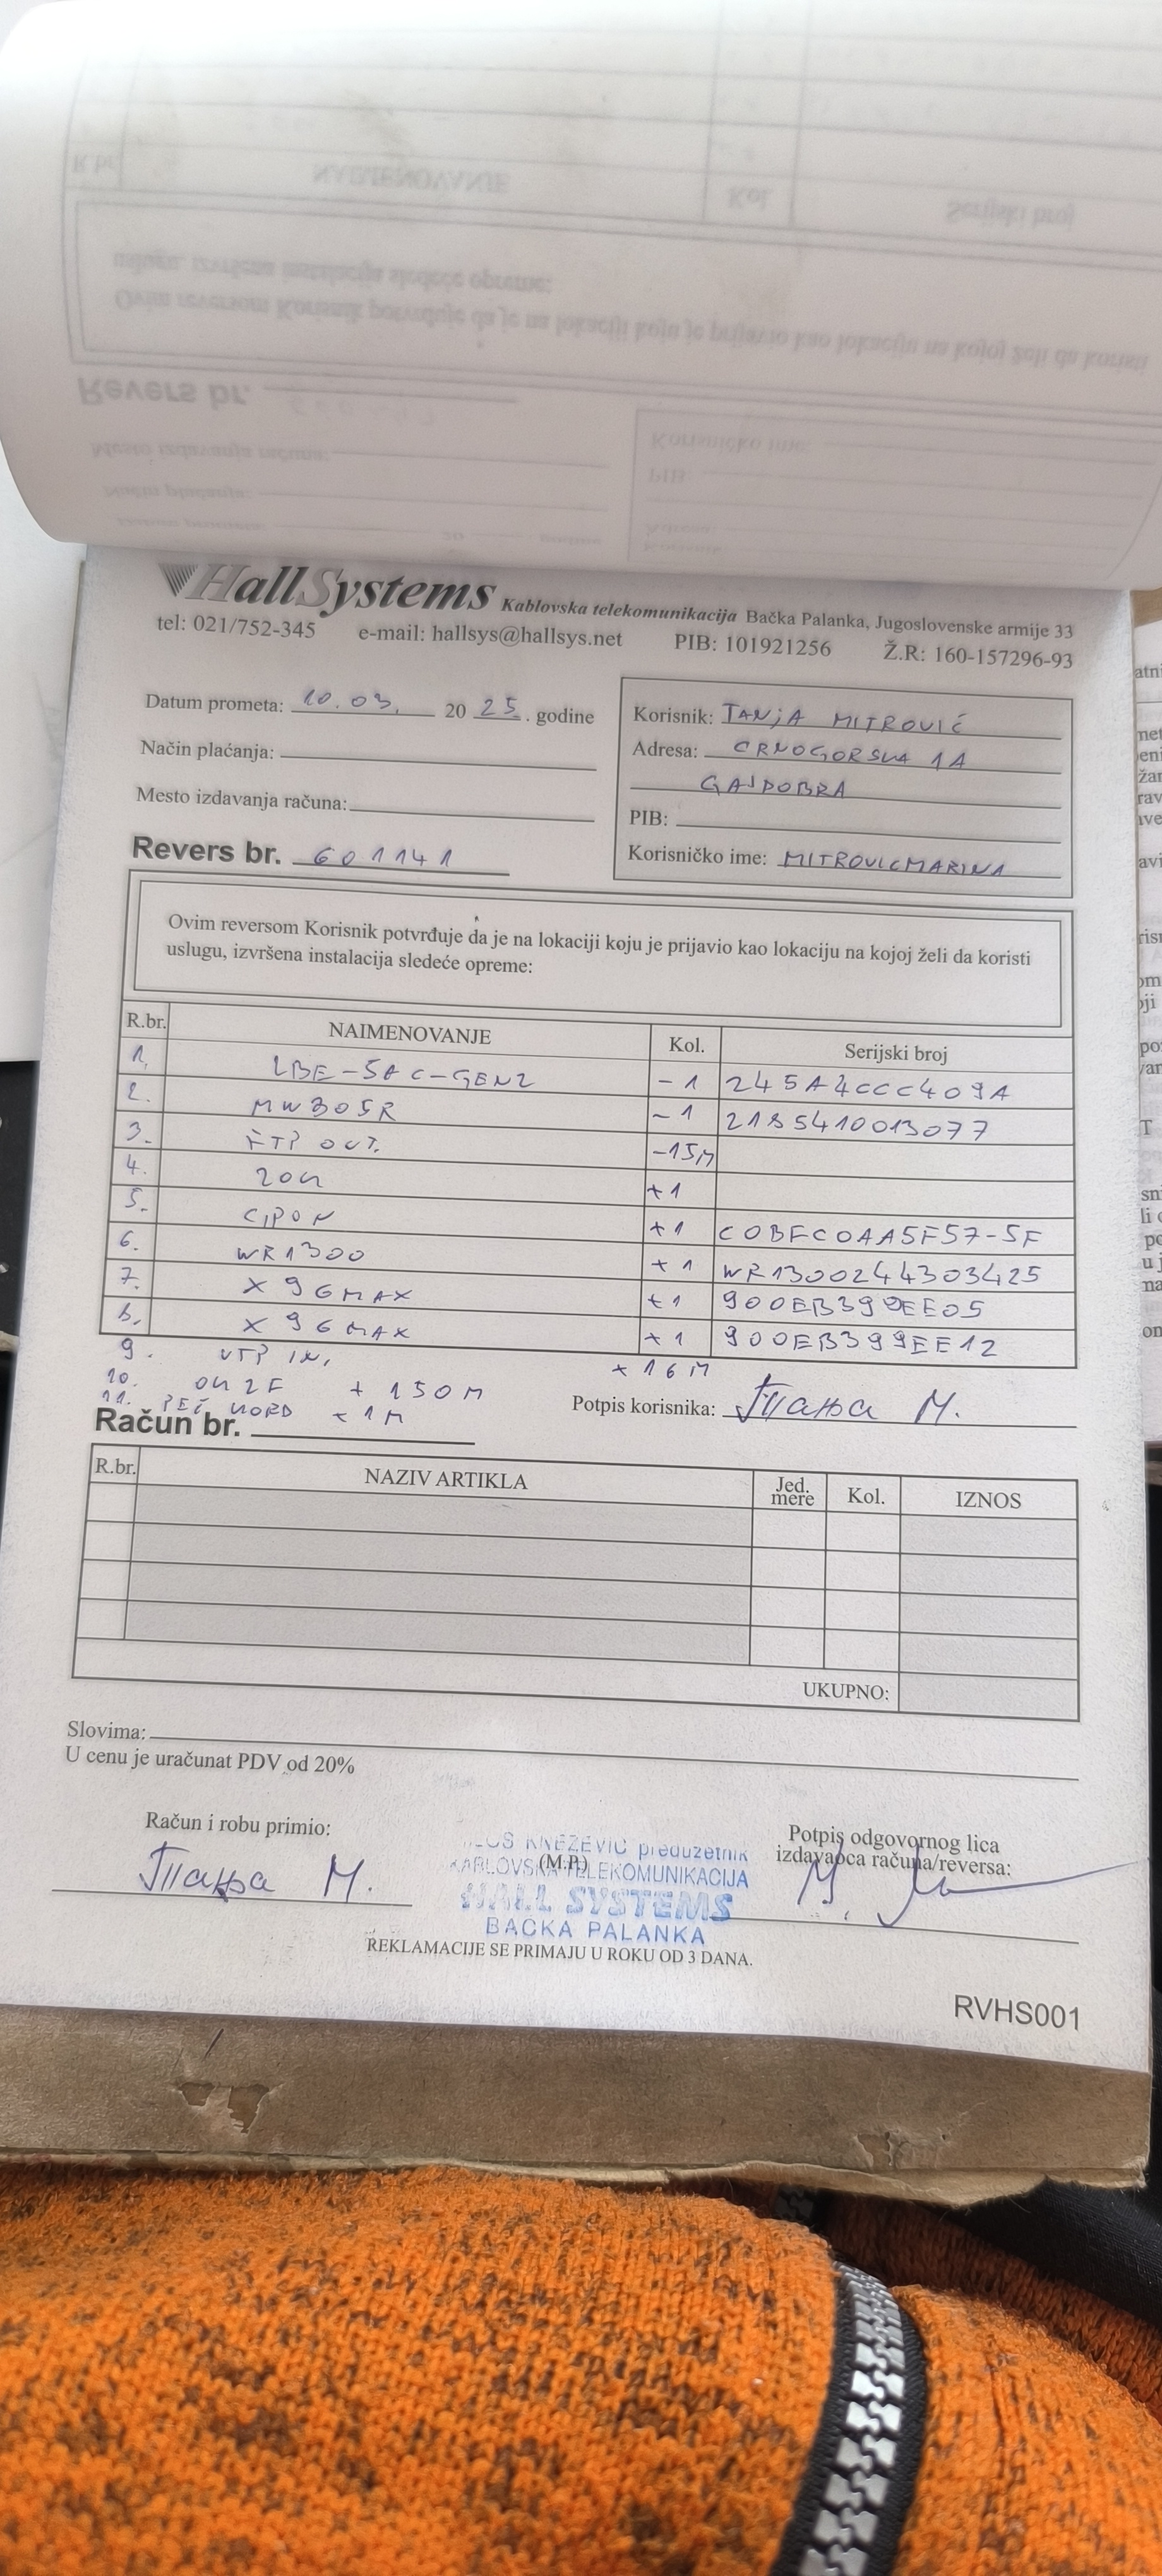 HallSystems Kablovska telekomunikacija Bačka Palanka, Jugoslovenske armije 33
tel: 021/752-345 e-mail: hallsys@hallsys.net PIB: 101921256 Ž.R: 160-157296-93
Datum prometa: 10.03. 20 25. godine
Način plaćanja:
Mesto izdavanja računa:
Korisnik: TANJA MITROVIĆ
Adresa: CRNOGORSKA 1A
GAJDOBRA
PIB:
Korisničko ime: MITROVICMARINA
Revers br. 601141
Ovim reversom Korisnik potvrđuje da je na lokaciji koju je prijavio kao lokaciju na kojoj želi da koristi
uslugu, izvršena instalacija sledeće opreme:
R.br. NAIMENOVANJE Kol. Serijski broj
1. LBE-5AC-GEN2 -1 245A4CCC409A
2. MW305R -1 2185410013077
3. FTP OUT. -15M
4. ZOK +1
5. GPON +1 C0BFC0AA5F57-5F
6. WR1300 +1 WR1300244303425
7. X96MAX +1 900EB399EE05
8. X96MAX +1 900EB399EE12
9. UTP IN. +16M
10. OK 2F + 150M
11. PEČ KORD +1M
Potpis korisnika: Тања М.
Račun br.
R.br. NAZIV ARTIKLA Jed. mere Kol. IZNOS
UKUPNO:
Slovima:
U cenu je uračunat PDV od 20%
Račun i robu primio:
Тања М.
KNEŽEVIĆ preduzetnik
(M.P.)
KABLOVSKA TELEKOMUNIKACIJA
HALL SYSTEMS
BAČKA PALANKA
Potpis odgovornog lica
izdavaoca računa/reversa:
REKLAMACIJE SE PRIMAJU U ROKU OD 3 DANA.
RVHS001